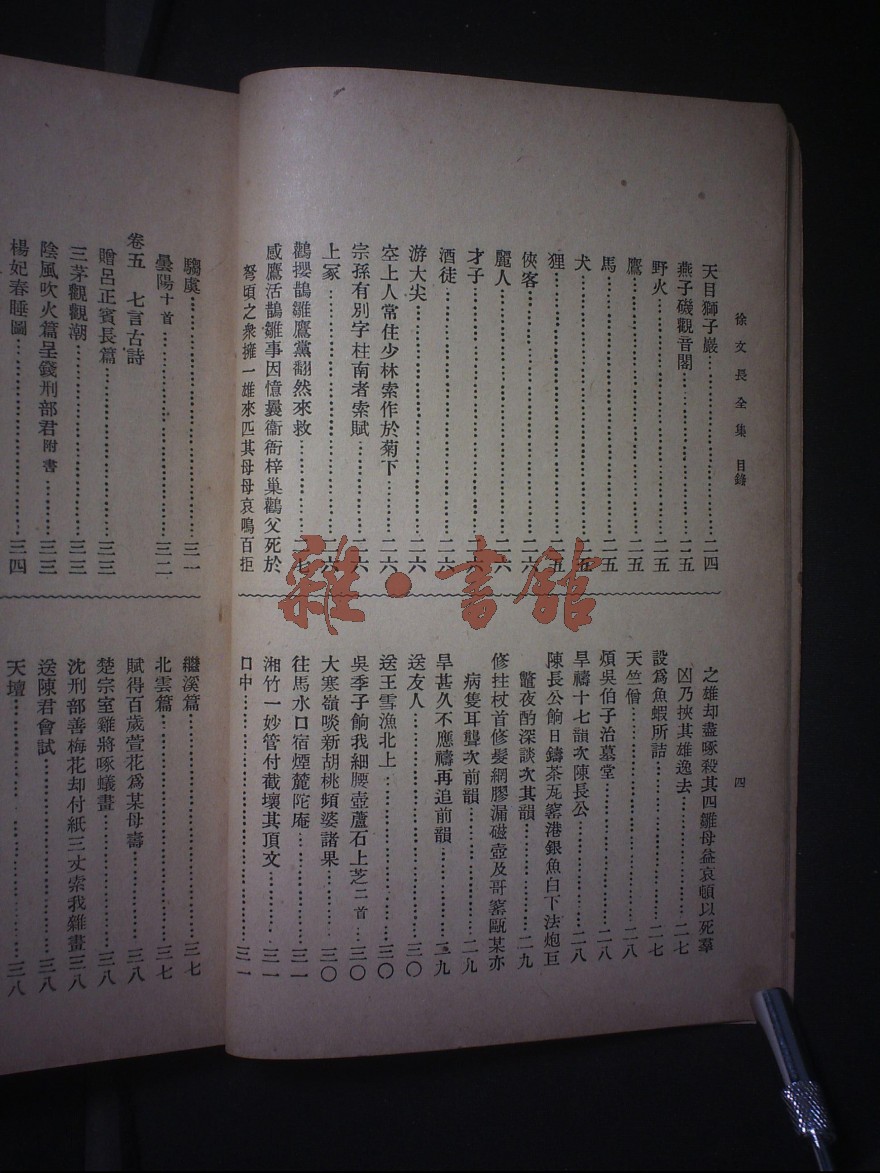 徐文長全集 目錄
四
天目獅子巖……二四
燕子磯觀音閣……二五
野火……二五
鷹……二五
馬……二五
犬……二五
狸……二五
俠客……二六
麗人……二六
才子……二六
酒徒……二六
游大尖……二六
空上人常住少林索作於菊下……二六
宗孫有別字桂南者索賦……二六
上冢……二六
鸛攖鵲雛鷹黨翻然來救……二七
感鷹活鵲雛事因憶曩衞衙梓巢鸛父死於
弩頃之衆擁一雄來匹其母母哀鳴百拒
之雄却盡啄殺其四雛母益哀頓以死羣
凶乃挾其雄逸去……二七
設爲魚蝦所詰……二七
天竺僧……二八
煩吳伯子治墓堂……二八
旱禱十七韻次陳長公……二八
陳長公餉日鑄茶瓦窰港銀魚白下法炮巨
鼈夜酌深談次其韻……二九
修拄杖首修髮網膠漏磁壺及哥窰甌某亦
病隻耳聾次前韻……二九
旱甚久不應禱再追前韻……二九
送友人……三〇
送王雪漁北上……三〇
吳季子餉我細腰壺蘆石上芝二首……三〇
大寒嶺啖新胡桃頻婆諸果……三〇
往馬水口宿煙麓陀庵……三一
湘竹一妙管付截壞其頂文……三一
口中……三一
騶虞……三一
曇陽十首……三二
卷五 七言古詩
贈呂正賓長篇……三三
三茅觀觀潮……三三
陰風吹火篇呈錢刑部君附書……三三
楊妃春睡圖……三四
繼溪篇……三七
北雲篇……三七
賦得百歲萱花爲某母壽……三八
楚宗室雞將啄蟻畫……三八
沈刑部善梅花却付紙三丈索我雜畫三八
送陳君會試……三八
天壇……三八
雜·書館